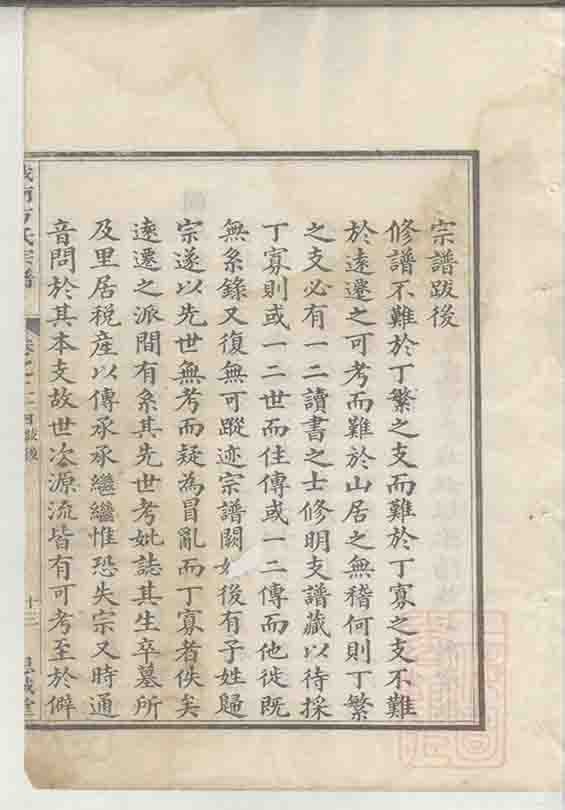 宗譜跋後
修譜不難於丁繁之支而難於丁寡之支不難
於遠遷之可考而難於山居之無稽何則丁繁
之支必有一二讀書之士修明支譜藏以待採
丁寡則或一二世而住傳或一二傳而他徙既
無系錄又復無可蹤迹宗譜闕如後有子姓歸
宗遂以先世無考而疑為冒亂而丁寡者佚矣
遠遷之派間有系其先世考妣誌其生卒墓所
及里居税產以傳承承繼繼惟恐失宗又時通
音問於其本支故世次源流皆有可考至於僻
方氏宗譜
跋後
十三